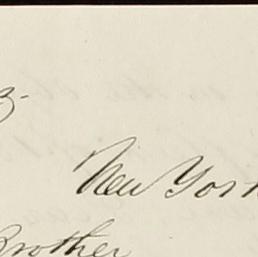 New York
Brother